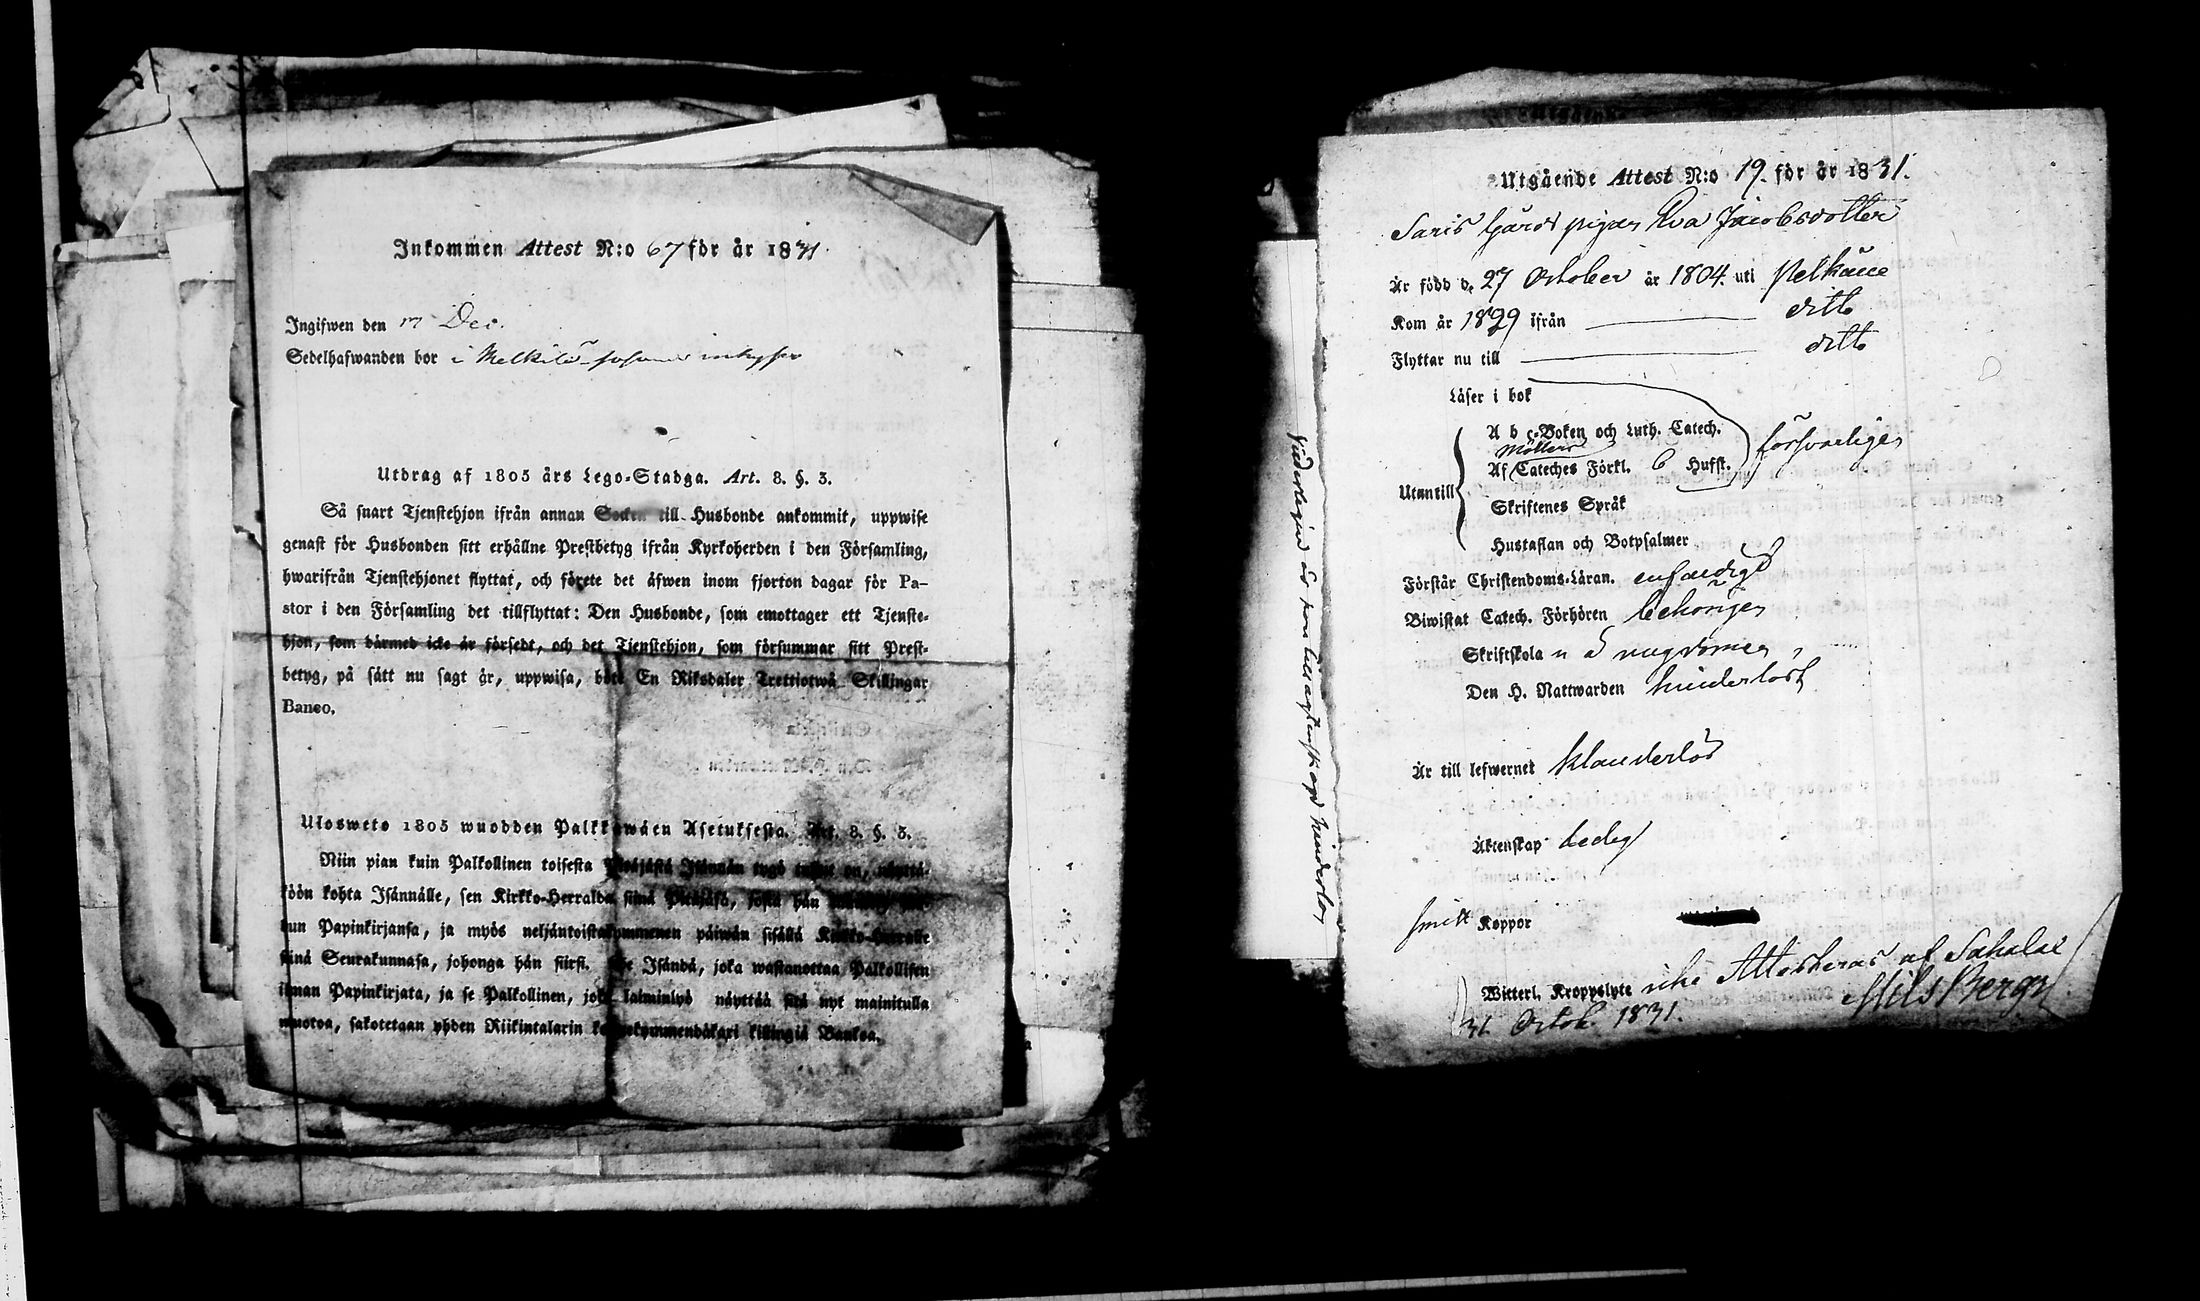 Inkommen Attest N:o 67 för år 1831.
Ingifwen den 17 Dec.
Sedelhafwanden bor i Melkilä
Utdrag af 1805 års Lego-Stadga. Art. 8. §. 3.
Så snart Tjenstehjon ifrån annan Socken till Husbonde ankommit, uppwise
genast för Husbonden sitt erhållne Prestbetyg ifrån Kyrkoherden i den Församling,
hwarifrån Tjenstehjonet flyttat, och förete det äfwen inom fjorton dagar för Pa-
stor i den Församling det tillflyttat: Den Husbonde, som emottager ett Tjenste-
hjon, som därmed icke är försedt, och det Tjenstehjon, som försummar sitt Prest-
betyg, på sätt nu sagt är, uppwisa, böte En Riksdaler Trettiotwå Skillingar
Banco.
Ulosweto 1805 wuodden Palkkawäen Asetuksesta. Art. 8. §. 3.
Niin pian kuin Palkollinen toisesta Pitäjästä Isännän tygö tullut on, näyttä-
köön kohta Isännälle, sen Kirkko-Herralda siinä Pitäjäsä, josta hän
Papinkirjansa, ja myös neljäntoistakymmenen päiwän sisällä Kirkko-Herralle
siinä Seurakunnasa, johonga hän siirsi. Se Isändä, joka wastanottaa Palkollisen
ilman Papinkirjata, ja se Palkollinen, joka laiminlyö näyttää sitä nyt mainitulla
muotoa, sakotetaan yhden Riikintalarin killingiä Bankoa.
Utgående Attest N:o 19. för år 1831.
Saris Gårds pigan Eva Jacobsdotter
Är född d. 27 October år 1804. uti Pelkäne
Kom år 1829 ifrån ditto
Flyttar nu till ditto
Läser i bok
A b c-Boken och Luth. Catech.
Möllers
Utantill Af Cateches Förkl. 6 Hufst. försvarligen
Skriftenes Språk
Hustaflan och Botpsalmer
Förstår Christendoms-Läran. enfaldigt
Biwistat Catech. Förhören behörigen
Skriftskola i ungdomen
Den H. Nattwarden hinderlöst
Är till lefwernet klanderlös
Äktenskap ledig
Koppor
Witterl. Kroppslyte Attesteras af Sahalax
31. Octob. 1831. Nils Bergh
Vidare är hon till ägtenskap hinderlös